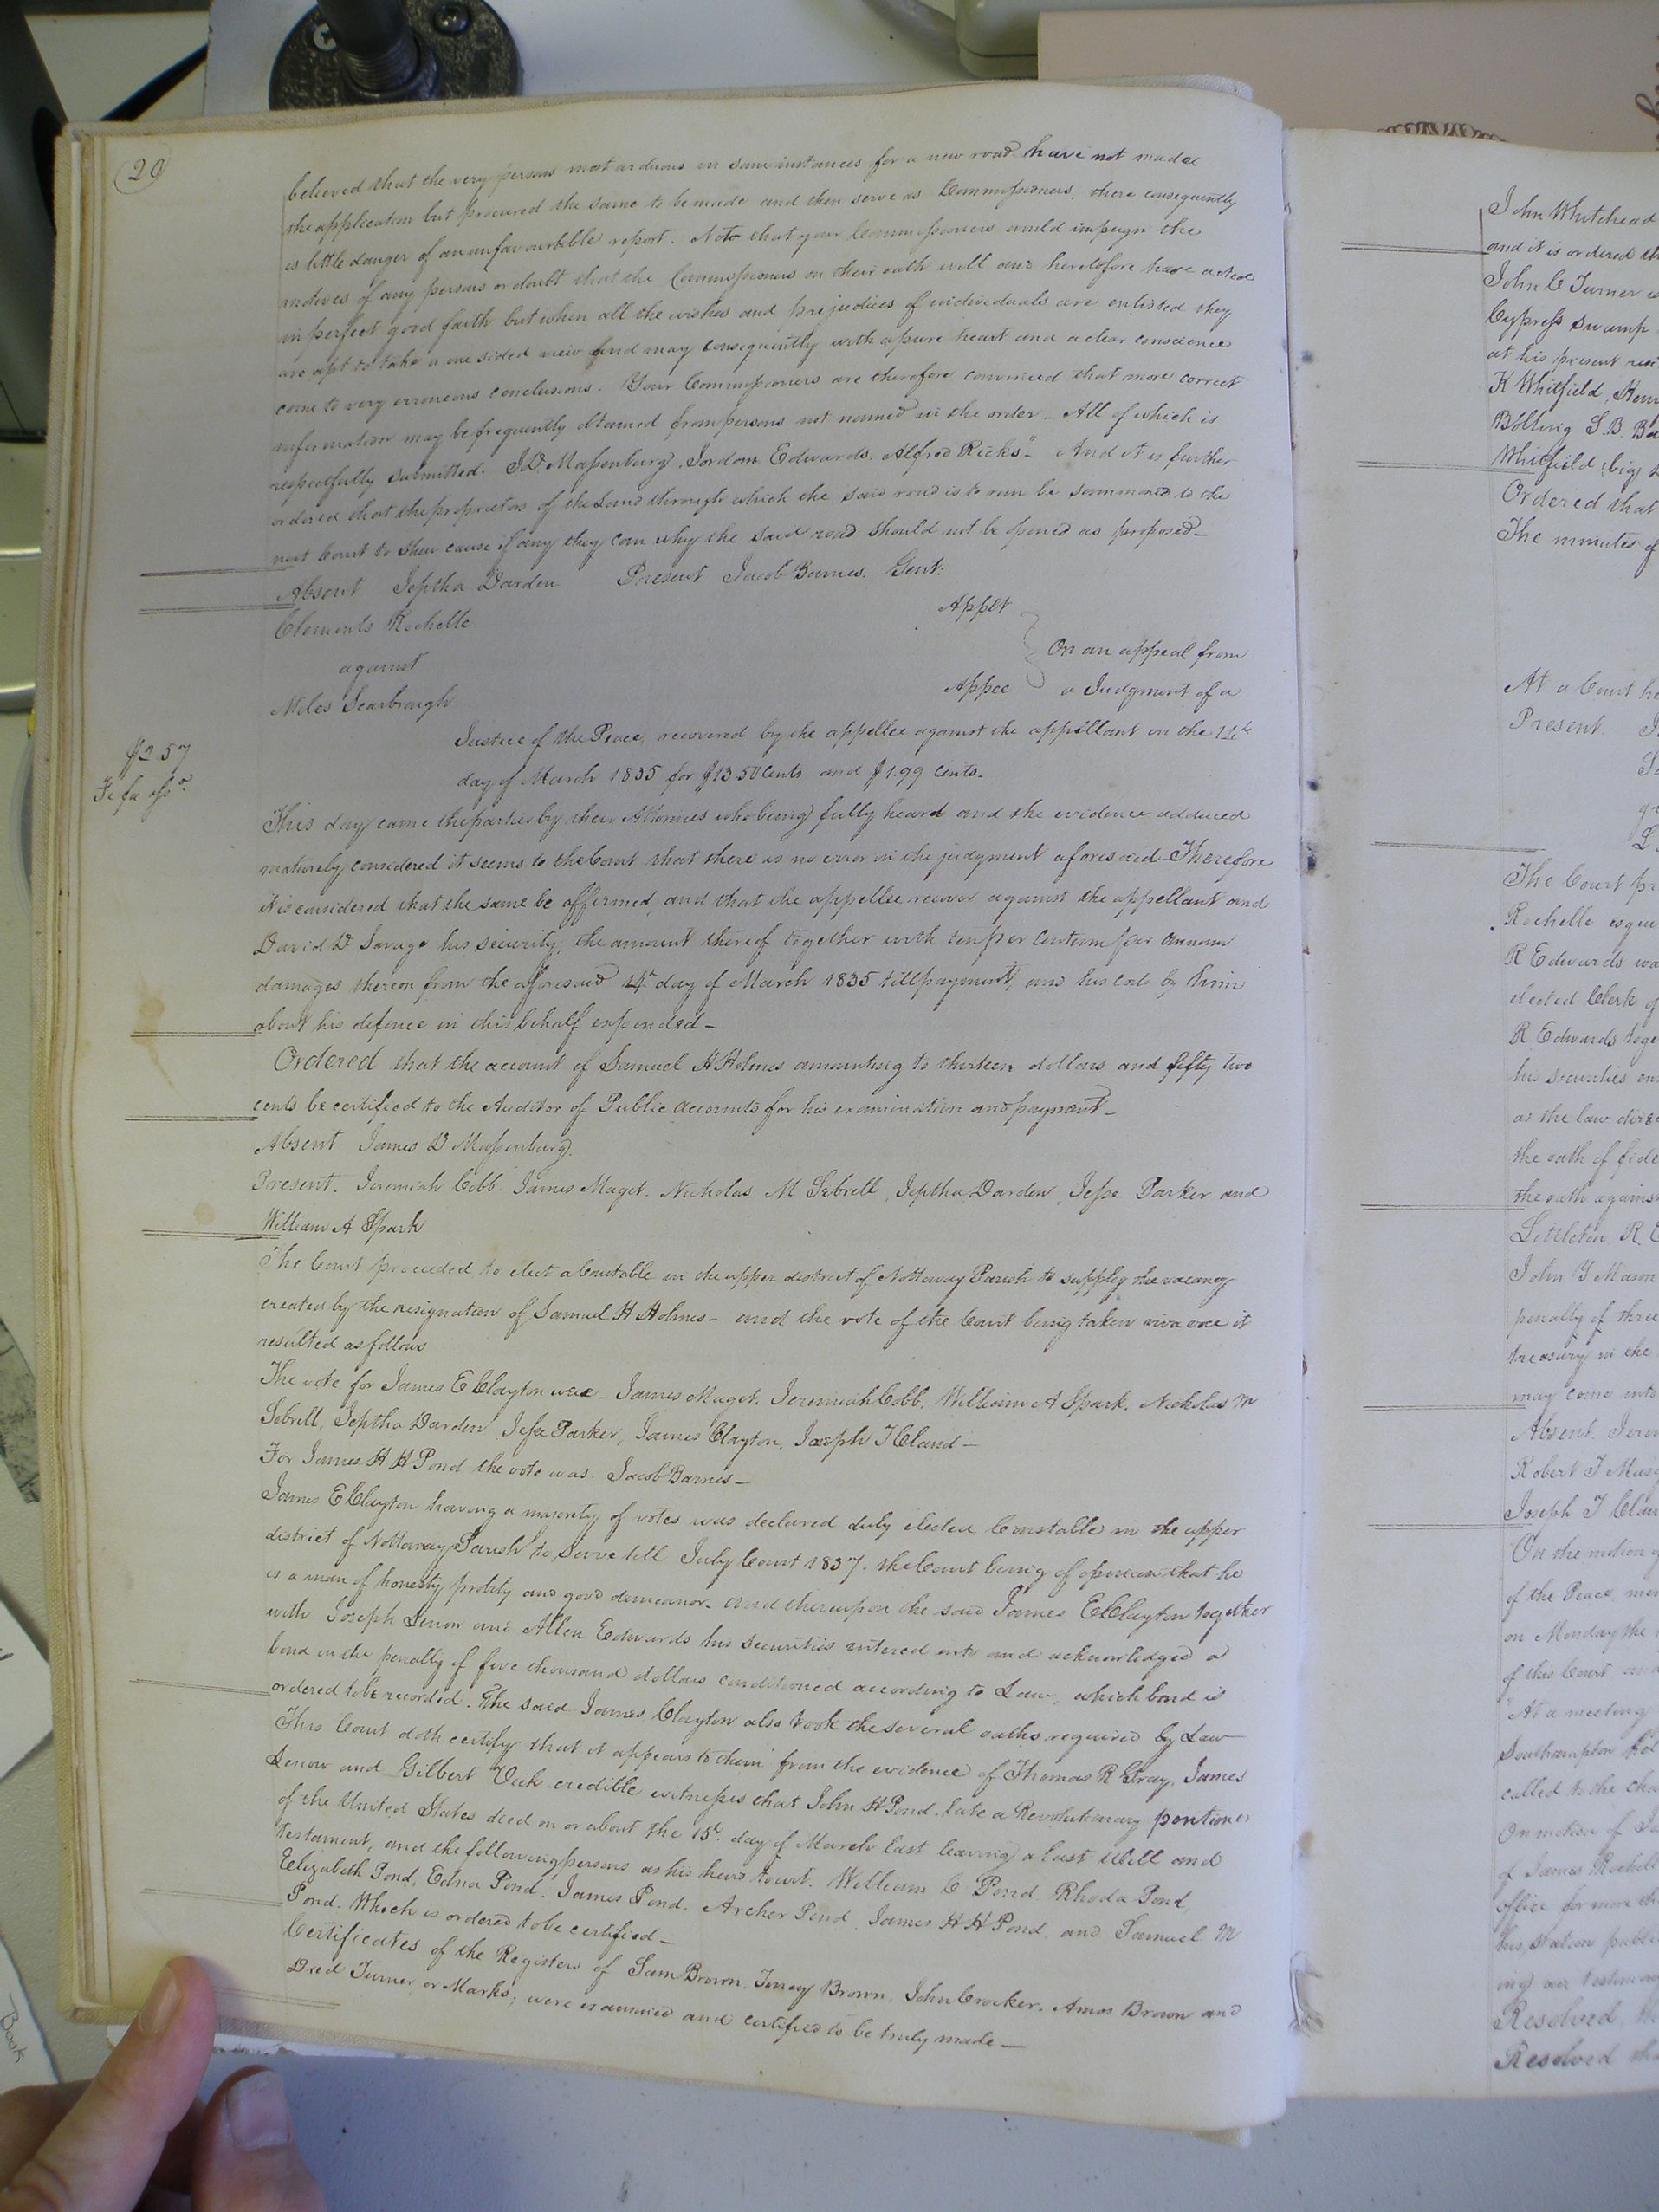 20
believed that the very persons most arduous in some instances for a new road have not made
the application but procured the same to be made and then serve as Commissioners, there consequently
is little danger of an unfavourable report. Not that your Commissioners would impugn the
motives of any persons or doubt that the Commissioners on their oath will and heretofore have acted
in perfect good faith but when all the wishes and prejudices of individuals are enlisted they
are apt to take a one sided view and may consequently with a pure heart and a clear conscience
come to very erroneous conclusions. Your Commissioners are therefore convinced that more correct
information may be frequently obtained from persons not named in the order - All of which is
respectfully submitted. J. D. Massenburg, Jordan Edwards, Alfred Ricks" - And it is further
ordered that the proprietors of the Land through which the said road is to run be summoned to the
next Court to shew cause if any they can why the said road should not be opened as proposed -
Absent Jeptha Darden Present Jacob Barnes. Gent:
Clements Rochelle Applt
against On an appeal from
Niles Scarbrough Appee a Judgment of a
$2 57
Fi fa issd
Justice of the Peace, recovered by the appellee against the appellant on the 14th
day of March 1835 for $13.50 Cents and $1.99 cents.
This day came the parties by their Attornies who being fully heard and the evidence adduced
maturely considered it seems to the Court that there is no error in the judgment aforesaid - Therefore
it is considered that the same be affirmed, and that the appellee recover against the appellant and
David D Savage his security, the amount thereof together with ten per Centum per annum
damages thereon from the aforesaid 14th day of March 1835 till payment, and his costs by him
about his defence in this behalf expended -
Ordered that the account of Samuel H Holmes amounting to thirteen dollars and fifty two
cents be certified to the Auditor of Public accounts for his examination and payment -
Absent James D Massenburg.
Present. Jeremiah Cobb. James Maget. Nicholas M Sebrell, Jeptha Darden, Jesse Parker and
William A Spark
The Court proceeded to elect a Constable in the upper district of Nottoway Parish to supply the vacancy
created by the resignation of Samuel H Holmes - and the vote of the Court being taken viva voce it
resulted as follows
The vote for James E Clayton was - James Maget, Jeremiah Cobb, William A Spark, Nicholas M
Sebrell, Jeptha Darden, Jesse Parker, James Clayton, Joseph T Claud -
For James H H Pond the vote was. Jacob Barnes -
James E Clayton having a majority of votes was declared duly elected Constable in the upper
district of Nottoway Parish to serve till July Court 1837. the Court being of opinion that he
is a man of honesty probity and good demeanor - and thereupon the said James E Clayton together
with Joseph Lenow and Allen Edwards his securities entered into and acknowledged a
bond in the penalty of five thousand dollars conditioned according to Law, which bond is
ordered to be recorded. The said James Clayton also took the several oaths required by Law
This Court doth certify that it appears to them from the evidence of Thomas R Gray, James
Lenow and Gilbert Vick credible witnesses that John H Pond. late a Revolutionary pentioner
of the United States died on or about the 15th day of March last leaving a last Will and
testament, and the following persons as his heirs towit. William C Pond. Rhoda Pond,
Elizabeth Pond, Edna Pond, James Pond, Archer Pond, James H H Pond, and Samuel M
Pond. Which is ordered to be certified -
Certificates of the Registers of Sam Brown, Brown, John Crocker, Amos Brown and
Dred Turner or Marks, were examined and certified to be truly made -
John Whitehead
and it is ordered th
John C Turner
Cypress swamp
at his present resi
K Whitfield, Hen
Bolling S. B. Ba
Whitfield (big)
Ordered that
The minutes of
At a Court he
Present. J
The Court pr
Rochelle esqui
R Edwards wa
elected Clerk of
R. Edwards toge
his securities
as the law dire
the oath of fide
the oath agains
Littleton R. E
John Y Mason
penalty of three
treasury in the
may come into
Absent. Jere
Robert T Mus
Joseph T Clau
On the motion
of the Peace,
on Monday the
of this Court
"At a meeting
Southampton
called to the cha
On motion of
of James Rochell
office for more th
his station publi
ing our testimon
Resolved, th
Resolved tha
Book